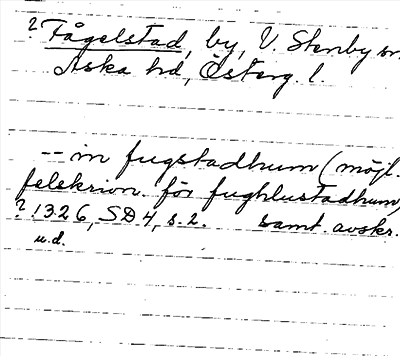 ? Fågelstad, by, V. Stenby sn.
Aska hd, Österg. l.
-- in fugstadhum (möjl.
felskrivn. för fughlustadhum)
? 1326, SD 4, s. 2. samt. avskr.
u.d.